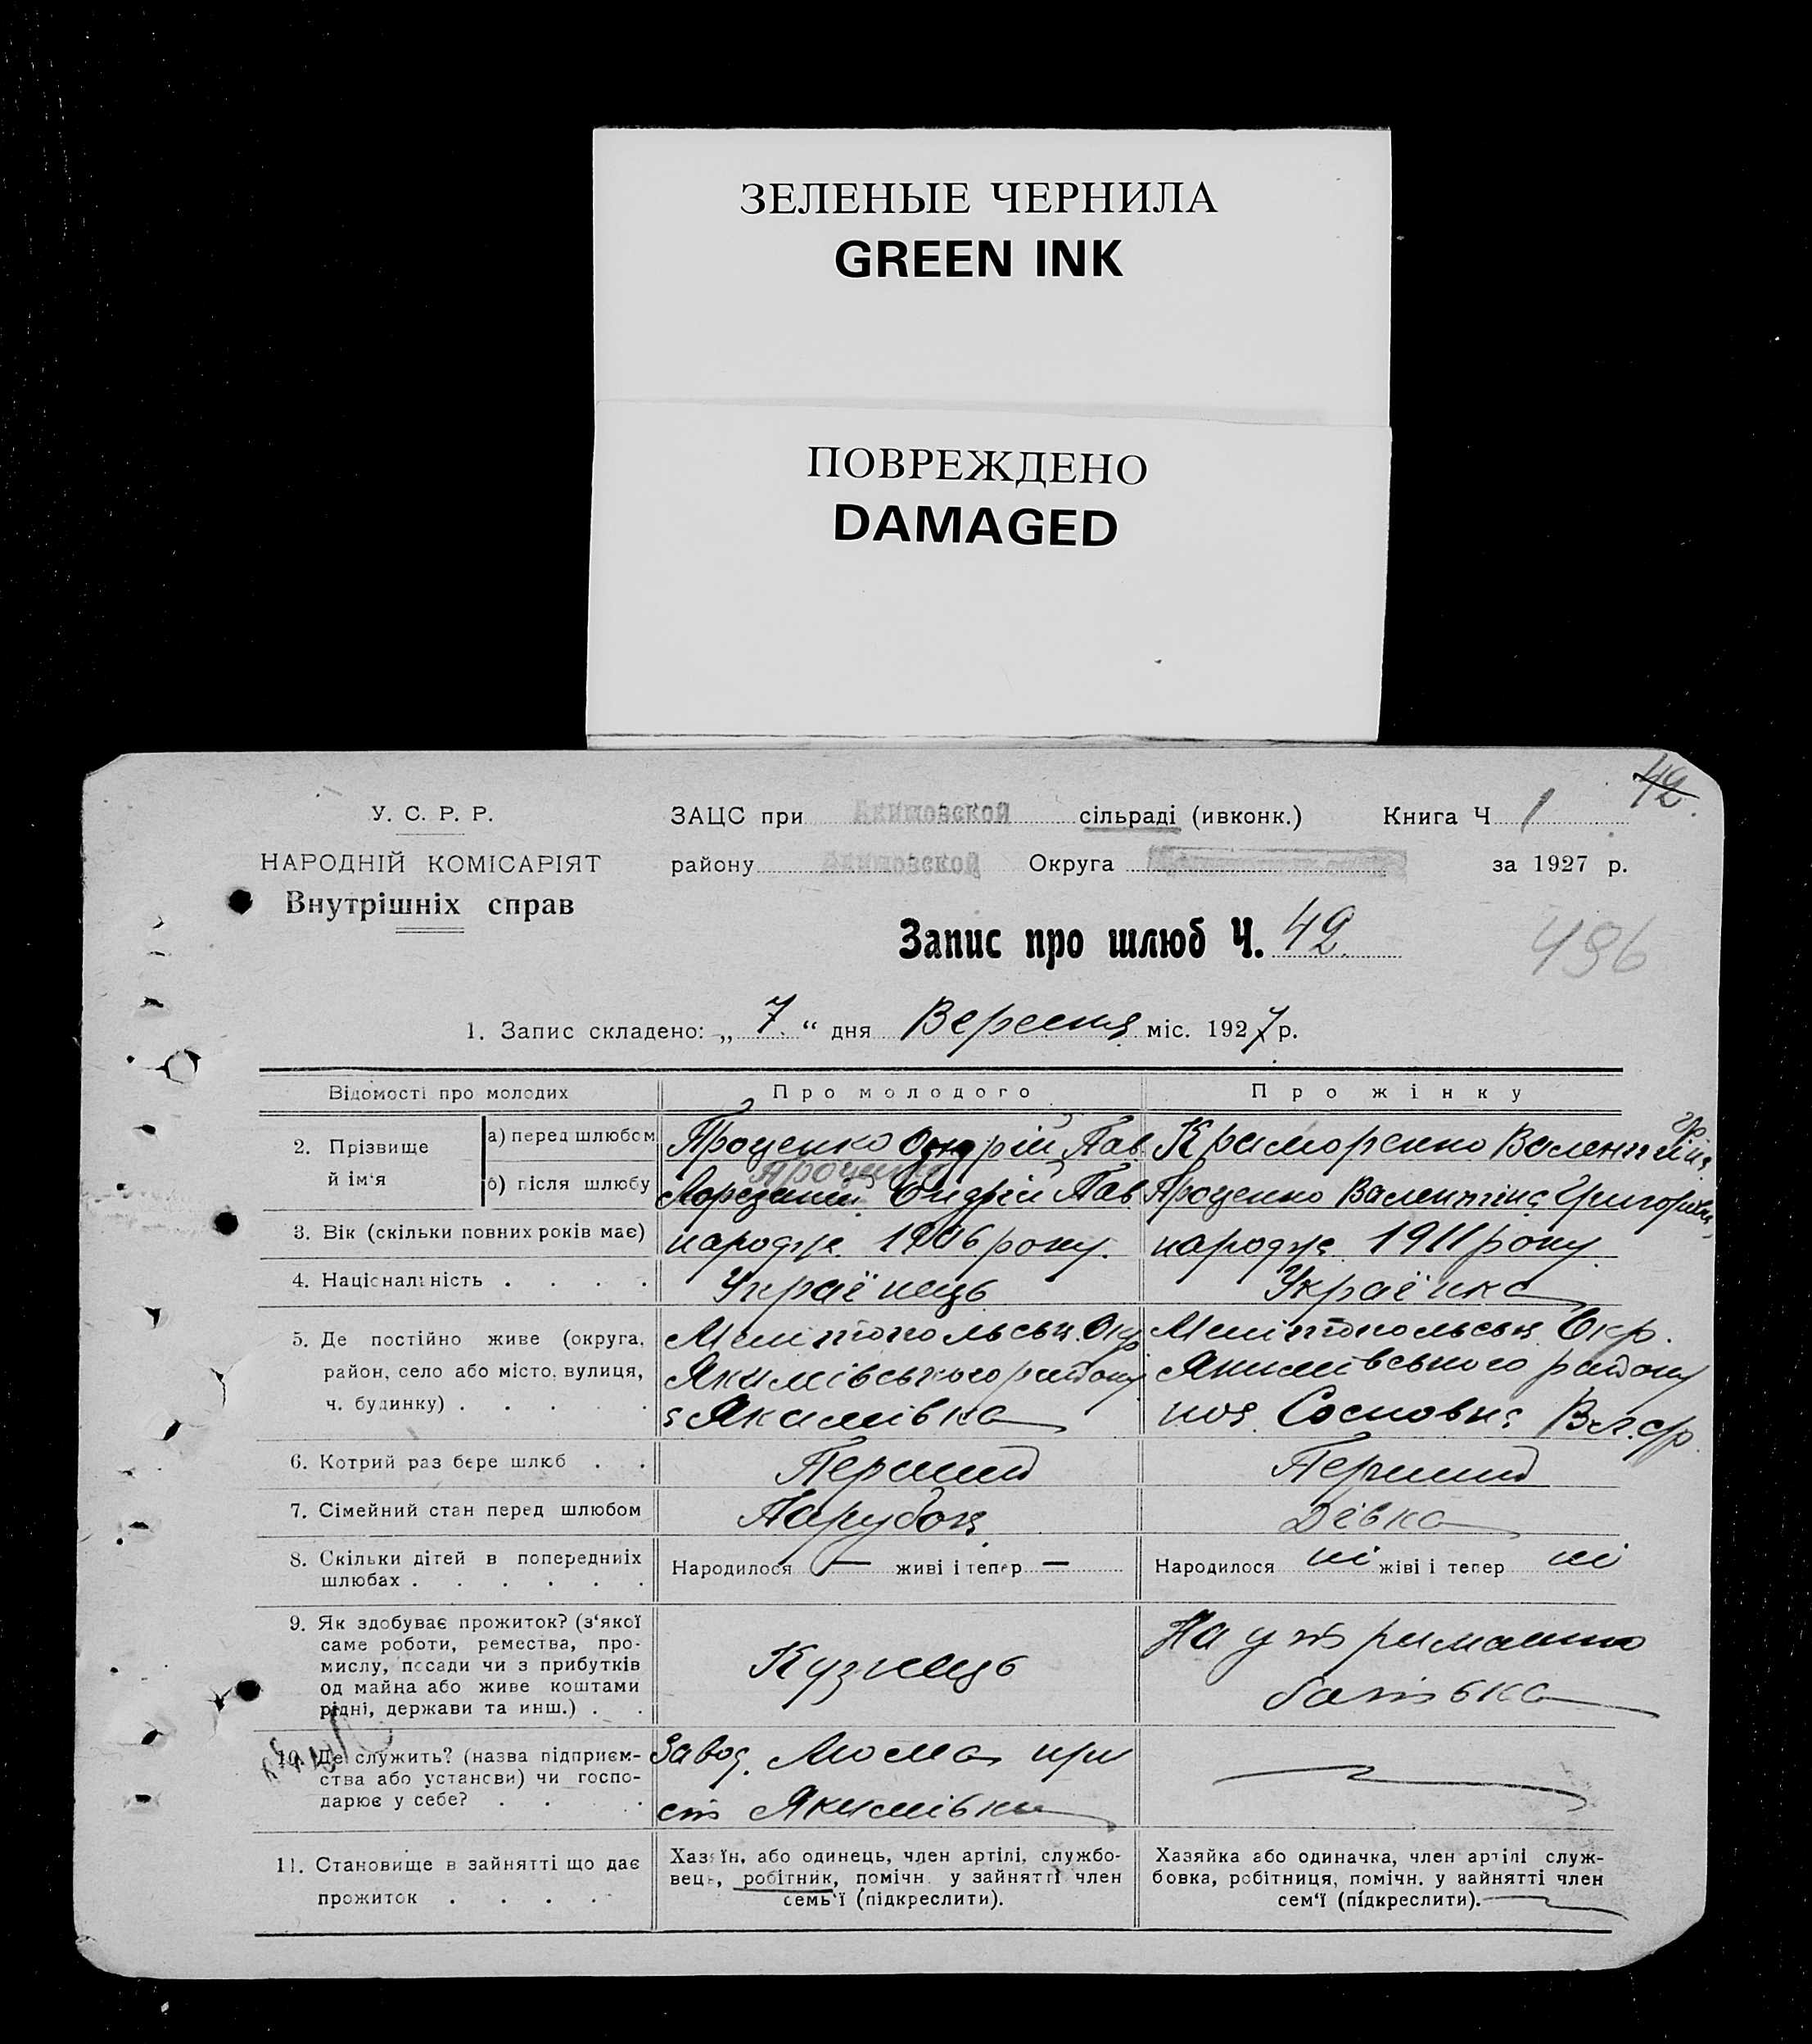 ЗЕЛЕНЫЕ ЧЕРНИЛА
GREEN INK
ПОВРЕЖДЕНО
DAMAGED
42
У. С. Р. Р.
ЗАЦС при Акимовской сільраді (ивконк.) Книга Ч 1
НАРОДНІЙ КОМІСАРІЯТ
району Акимовской Округа за 1927 р.
Внутрішніх справ
Запис про шлюб Ч. 42
496
1. Запис складено: „ 7 “ дня Вересня міс. 1927 р.
Відомості про молодих
Про молодого
Про жінку
2. Прізвище й ім'я
а) перед шлюбом
Проценко Ондрій Пав
Краморенко Валентіна Гр
б) після шлюбу
Проценко
Ондрій Пав
Проценко Валентіна Григорівн
3. Вік (скільки повних років має)
народж. 1906 року.
народж. 1911 року
4. Національність . . . .
Українець
Українка
5. Де постійно живе (округа,
район, село або місто, вулиця,
ч. будинку) . . . . .
Мелітопольськ. Окр
Якимівського району
с Якимівка
Мелітопольськ Окр.
Якимівського району
Сосновка
6. Котрий раз бере шлюб . .
Перший
Перший
7. Сімейний стан перед шлюбом
Парубок
Дівка
8. Скільки дітей в попередніх
шлюбах . . . . . .
Народилося — живі і тепер —
Народилося ні жіві і тепер ні
9. Як здобуває прожиток? (з'якої
саме роботи, ремества, про-
мислу, посади чи з прибутків
од майна або живе коштами
рідні, держави та инш.) . .
Кузнець
На утриманню
батівка
10. Де служить? (назва підприєм-
ства або установи) чи госпо-
дарює у себе? . . .
Завод. при
ст Якимівки
11. Становище в зайнятті що дає
прожиток . . . .
Хазяїн, або одинець, член артілі, службо-
вець, робітник, помічн. у зайнятті член
семь'ї (підкреслити).
Хазяйка або одиначка, член артілі служ-
бовка, робітниця, помічн. у зайнятті член
сем'ї (підкреслити).